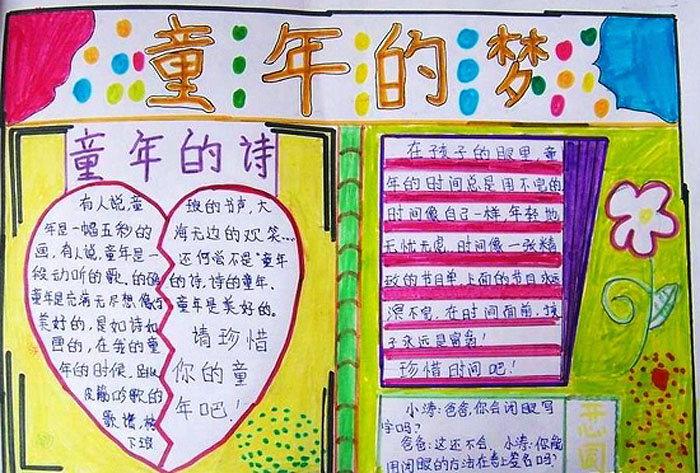 童年的梦
童年的诗
有人说,童
年是一幅五彩的
画,有人说,童年是一
段动听的歌。的确
童年是充满无尽想像与
美好的,是如诗如
画的,在我的童
年的时候,跳
皮筋吟歌的
歌谱,楼
下
班的书声,大
海无边的欢笑…
还何尝不是"童年
的诗,诗的童年,
童年是美好的。
请珍惜
你的童
年吧!
在孩子的眼里,童
年的时间总是用不完的
时间像自己一样,年轻地
无忧无虑,时间像一张精
致的节目单,上面的节目永远
演不完,在时间面前,孩
子永远是富翁!
珍惜时间吧!
小涛:爸爸,你会闭眼写
字吗?
爸爸:这还不会,小涛:你能
用闭眼的方法在上签名吗?